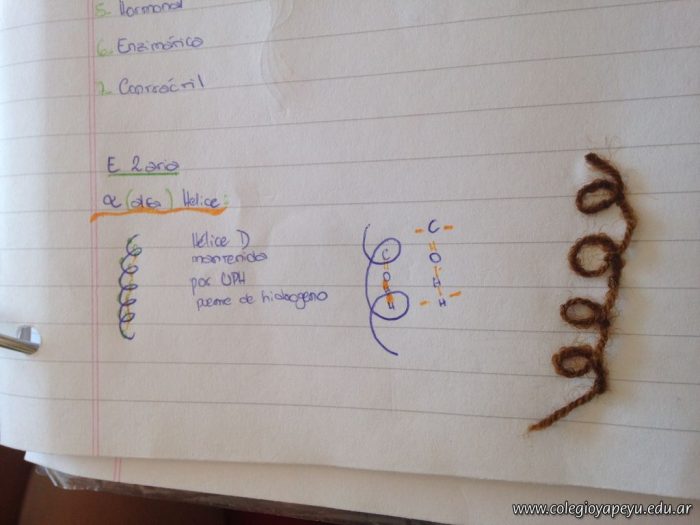 5. Hormonal
6. Enzimático
7. Contráctil
E 2aria
α (alfa) Helice:
Hélice D
mantenida
por UPH
puente de hidrogeno
C
O
H
C
O
H
H
www.colegioyapeyu.edu.ar